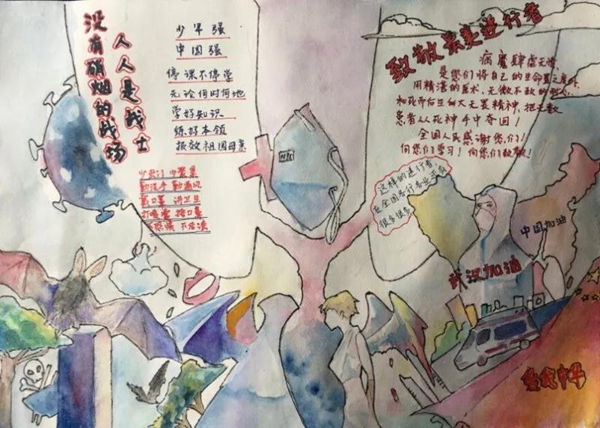 没有硝烟的战场
人人是战士
少年强
中国强
停课不停学
无论何时何地
学好知识
练好本领
报效祖国母亲
勤洗手 勤通风
戴口罩 讲卫生
打喷嚏 捂口鼻
N95
致敬最美逆行者
病魔肆虐无情,
是您们将自己的生命置之度外
用精湛的医术,无微不致的
患者从死神手中夺回!
全国人民感谢您们!
向您们学习!向您们致敬!
这样的逆行者
在全国各行各业还有
很多很多
中国加油
武汉加油